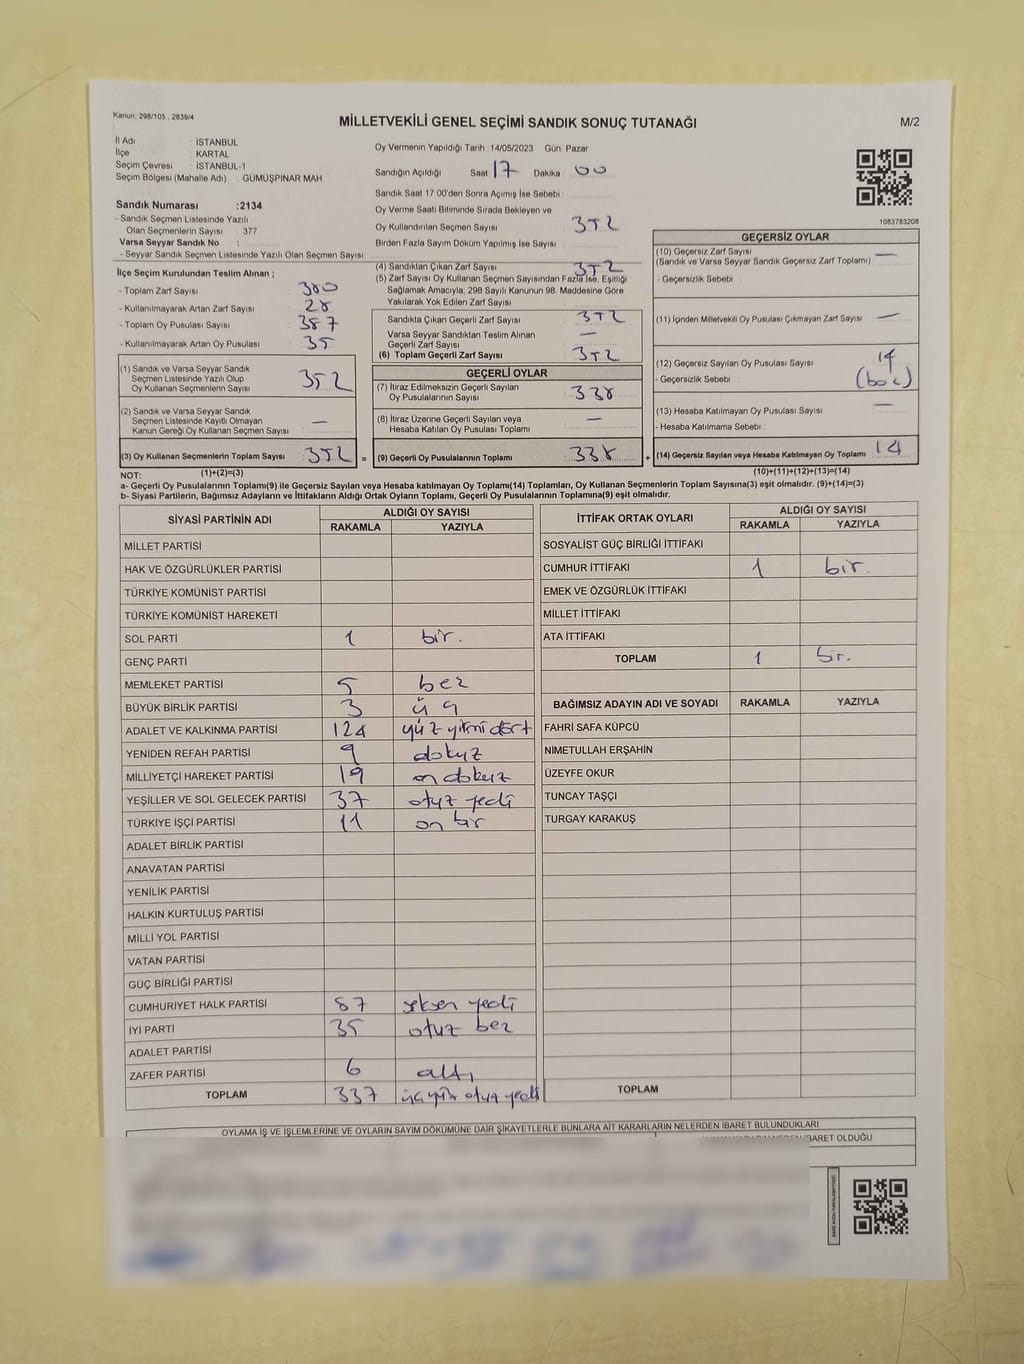 Kanun, 298/105 , 2839/4
MİLLETVEKİLİ GENEL SEÇİMİ SANDIK SONUÇ TUTANAĞI
M/2
İl Adı : İSTANBUL
İlçe : KARTAL
Seçim Çevresi : İSTANBUL-1
Seçim Bölgesi (Mahalle Adı) : GÜMÜŞPINAR MAH.
Sandık Numarası :2134
- Sandık Seçmen Listesinde Yazılı
Olan Seçmenlerin Sayısı : 377
Varsa Seyyar Sandık No :
- Seyyar Sandık Seçmen Listesinde Yazılı Olan Seçmen Sayısı :
Oy Vermenin Yapıldığı Tarih : 14/05/2023 Gün: Pazar
Sandığın Açıldığı Saat : 17 Dakika : 00
Sandık Saat 17.00'den Sonra Açılmış İse Sebebi :
Oy Verme Saati Bitiminde Sırada Bekleyen ve
Oy Kullandırılan Seçmen Sayısı : 352
Birden Fazla Sayım Döküm Yapılmış İse Sayısı :
1083783208
İlçe Seçim Kurulundan Teslim Alınan ;
- Toplam Zarf Sayısı : 380
- Kullanılmayarak Artan Zarf Sayısı : 28
- Toplam Oy Pusulası Sayısı : 387
- Kullanılmayarak Artan Oy Pusulası : 35
(1) Sandık ve Varsa Seyyar Sandık
Seçmen Listesinde Yazılı Olup
Oy Kullanan Seçmenlerin Sayısı : 352
(2) Sandık ve Varsa Seyyar Sandık
Seçmen Listesinde Kayıtlı Olmayan
Kanun Gereği Oy Kullanan Seçmen Sayısı : —
(3) Oy Kullanan Seçmenlerin Toplam Sayısı : 352 =
(4) Sandıktan Çıkan Zarf Sayısı : 352
(5) Zarf Sayısı Oy Kullanan Seçmen Sayısından Fazla İse, Eşitliği
Sağlamak Amacıyla; 298 Sayılı Kanunun 98. Maddesine Göre
Yakılarak Yok Edilen Zarf Sayısı :
Sandıkta Çıkan Geçerli Zarf Sayısı : 352
Varsa Seyyar Sandıktan Teslim Alınan
Geçerli Zarf Sayısı : —
(6) Toplam Geçerli Zarf Sayısı : 352
GEÇERLİ OYLAR
(7) İtiraz Edilmeksizin Geçerli Sayılan
Oy Pusulalarının Sayısı : 338
(8) İtiraz Üzerine Geçerli Sayılan veya
Hesaba Katılan Oy Pusulası Toplamı : —
(9) Geçerli Oy Pusulalarının Toplamı : 338 +
GEÇERSİZ OYLAR
(10) Geçersiz Zarf Sayısı : —
(Sandık ve Varsa Seyyar Sandık Geçersiz Zarf Toplamı)
- Geçersizlik Sebebi :
(11) İçinden Milletvekili Oy Pusulası Çıkmayan Zarf Sayısı : —
(12) Geçersiz Sayılan Oy Pusulası Sayısı : 14
- Geçersizlik Sebebi :
(13) Hesaba Katılmayan Oy Pusulası Sayısı : —
- Hesaba Katılmama Sebebi :
(14) Geçersiz Sayılan veya Hesaba Katılmayan Oy Toplamı : 14
NOT: (1)+(2)=(3) (10)+(11)+(12)+(13)=(14)
a- Geçerli Oy Pusulalarının Toplamı(9) ile Geçersiz Sayılan veya Hesaba Katılmayan Oy Toplamı(14) Toplamları, Oy Kullanan Seçmenlerin Toplam Sayısına(3) eşit olmalıdır. (9)+(14)=(3)
b- Siyasi Partilerin, Bağımsız Adayların ve İttifakların Aldığı Ortak Oyların Toplamı, Geçerli Oy Pusulalarının Toplamına(9) eşit olmalıdır.
SİYASİ PARTİNİN ADI ALDIĞI OY SAYISI
RAKAMLA YAZIYLA
MİLLET PARTİSİ
HAK VE ÖZGÜRLÜKLER PARTİSİ
TÜRKİYE KOMÜNİST PARTİSİ
TÜRKİYE KOMÜNİST HAREKETİ
SOL PARTİ 1 bir.
GENÇ PARTİ
MEMLEKET PARTİSİ 5 beş
BÜYÜK BİRLİK PARTİSİ 3 üç
ADALET VE KALKINMA PARTİSİ 124 yüz yirmi dört
YENİDEN REFAH PARTİSİ 9 dokuz
MİLLİYETÇİ HAREKET PARTİSİ 19 on dokuz
YEŞİLLER VE SOL GELECEK PARTİSİ 37 otuz yedi
TÜRKİYE İŞÇİ PARTİSİ 11 on bir
ADALET BİRLİK PARTİSİ
ANAVATAN PARTİSİ
YENİLİK PARTİSİ
HALKIN KURTULUŞ PARTİSİ
MİLLİ YOL PARTİSİ
VATAN PARTİSİ
GÜÇ BİRLİĞİ PARTİSİ
CUMHURİYET HALK PARTİSİ 87 seksen yedi
İYİ PARTİ 35 otuz beş
ADALET PARTİSİ
ZAFER PARTİSİ 6 altı
TOPLAM 337 üçyüz otuz yedi
İTTİFAK ORTAK OYLARI ALDIĞI OY SAYISI
RAKAMLA YAZIYLA
SOSYALİST GÜÇ BİRLİĞİ İTTİFAKI
CUMHUR İTTİFAKI 1 bir.
EMEK VE ÖZGÜRLÜK İTTİFAKI
MİLLET İTTİFAKI
ATA İTTİFAKI
TOPLAM 1 bir.
BAĞIMSIZ ADAYIN ADI VE SOYADI RAKAMLA YAZIYLA
FAHRİ SAFA KÜPCÜ
NİMETULLAH ERŞAHİN
ÜZEYFE OKUR
TUNCAY TAŞÇI
TURGAY KARAKUŞ
TOPLAM
OYLAMA İŞ VE İŞLEMLERİNE VE OYLARIN SAYIM DÖKÜMÜNE DAİR ŞİKAYETLERLE BUNLARA AİT KARARLARIN NELERDEN İBARET BULUNDUKLARI
İBARET OLDUĞU